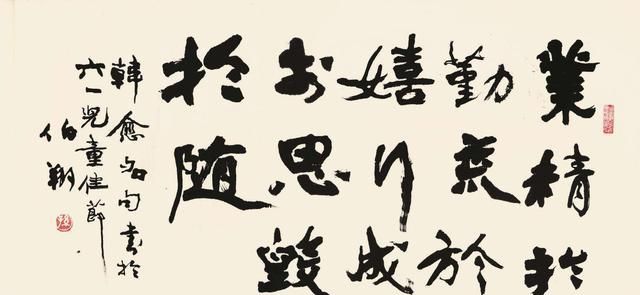 業精於
勤荒於
嬉行成
於思毀
於随
韓愈名句書於
六一兒童佳節
伯翔